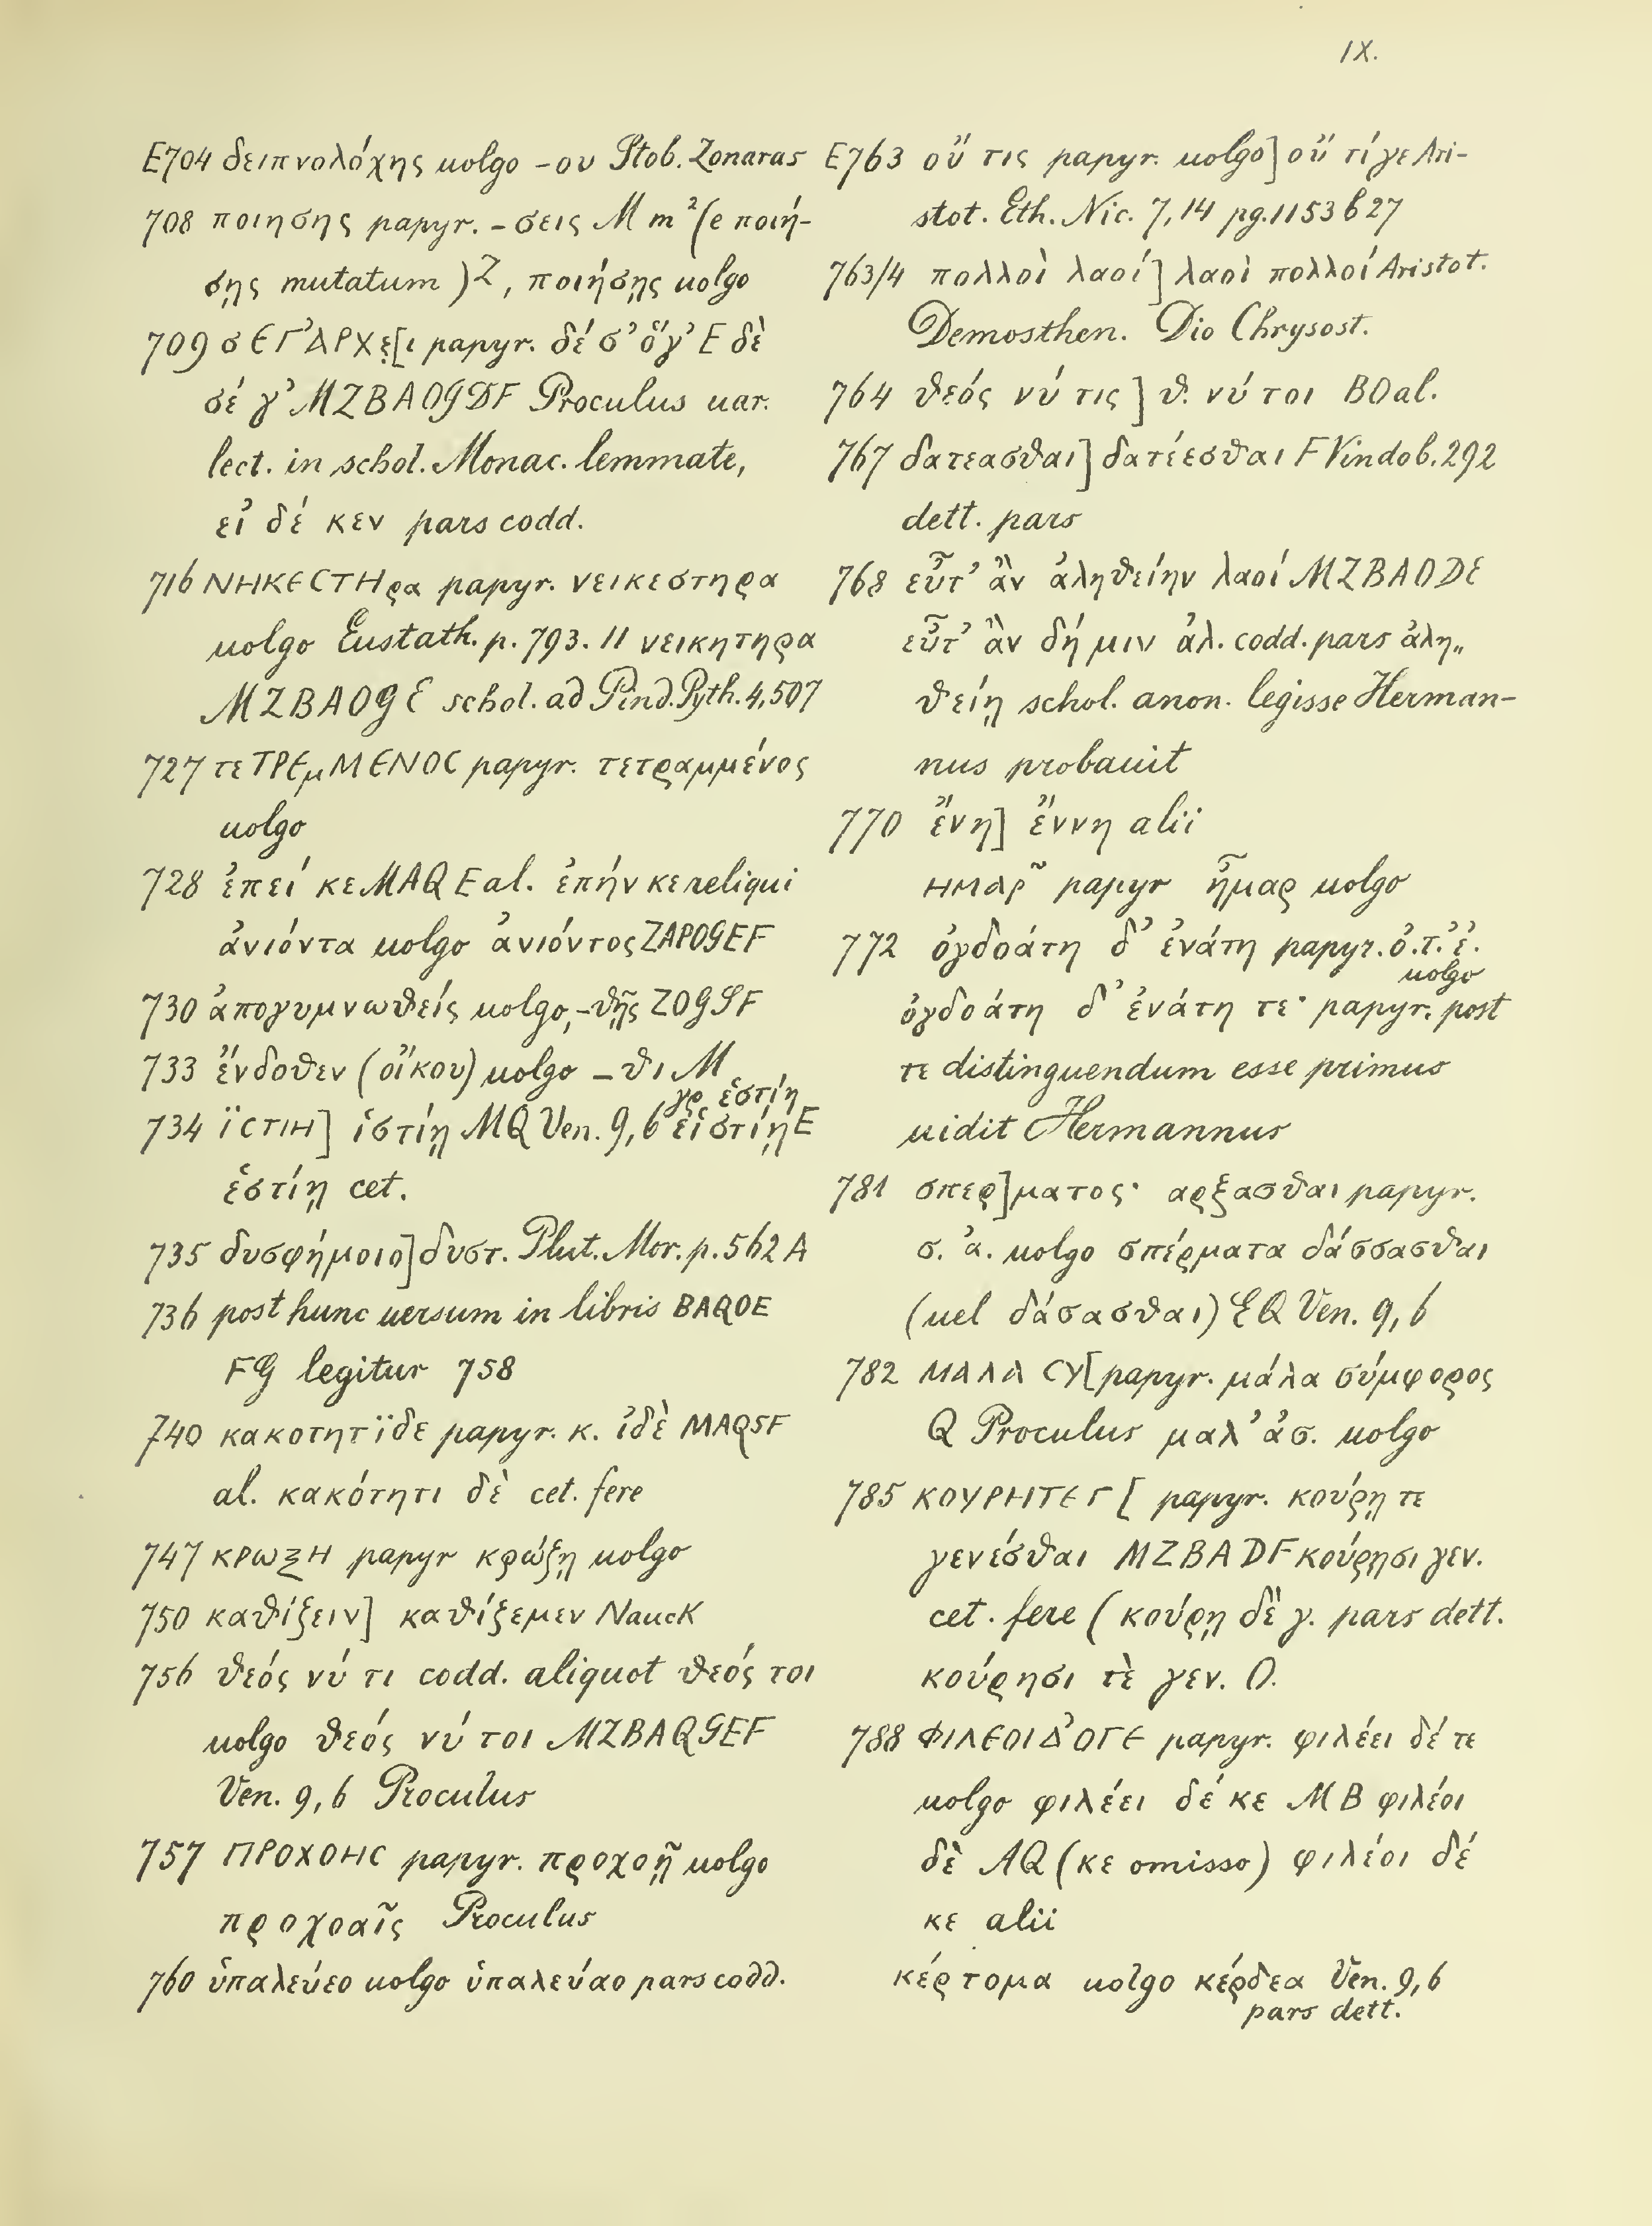 IX.
E704 δειπνολόχης uolgo -ου Stob. Zonaras
708 ποιησης papyr. -σεις M m² (e ποιή-
σῃς mutatum) Z, ποιήσῃς uolgo
709 σΕΓ᾽ΑΡΧε̣[ι papyr. δέ σ᾽ ὅγ᾽ E δὲ
σέ γ᾽ MZBAOGDF Proculus uar.
lect. in schol. Monac. lemmate,
εἰ δέ κεν pars codd.
716 ΝΗΚΕCΤΗρα papyr. νεικεστηρα
uolgo Eustath. p. 793. 11 νεικητηρα
MZBAOGE schol. ad Pind. Pyth. 4,507
727 τεΤΡΕμΜΕΝΟC papyr. τετραμμένος
uolgo
728 ἐπεί κε MAQE al. ἐπήν κε reliqui
ἀνιόντα uolgo ἀνιόντος ZAPOGEF
730 ἀπογυμνωθείς uolgo, -θῇς ZOGSF
733 ἔνδοθεν (οἴκου) uolgo -θι M
734 ΪCΤΙΗ] ἱστίῃ MQ Ven. 9,6 εἱστίῃ γρ ἑστίη E
ἑστίῃ cet.
735 δυσφήμοιο] δυστ. Plut. Mor. p. 562 A
736 post hunc uersum in libris BAQOE
FG legitur 758
740 κακοτητϊδε papyr. κ. ἰδὲ MAQSF
al. κακότητι δὲ cet. fere
747 ΚΡΩΞΗ papyr κρώξῃ uolgo
750 καθίξειν] καθίξεμεν Nauck
756 θεός νύ τι codd. aliquot θεός τοι
uolgo θεός νύ τοι MZBAQGEF
Ven. 9,6 Proculus
757 ΠΡΟΧΟΗC papyr. προχοῇ uolgo
προχοαῖς Proculus
760 ὑπαλεύεο uolgo ὑπαλεύαο pars codd.
E763 οὔ τις papyr. uolgo] οὔ τί γε Ari-
stot. Eth. Nic. 7,14 pg. 1153 b 27
763/4 πολλοὶ λαοί] λαοὶ πολλοί Aristot.
Demosthen. Dio Chrysost.
764 θεός νύ τις] θ. νύ τοι BO al.
767 δατεασθαι] δατέεσθαι F Vindob. 292
dett. pars
768 εὖτ᾽ ἂν ἀληθείην λαοί MZBAODE
εὖτ᾽ ἂν δή μιν ἀλ. codd. pars ἀλη„
θείῃ schol. anon. legisse Herman-
nus probauit
770 ἔνη] ἔννη alii
ΗΜΑΡ῀ papyr ἦμαρ uolgo
772 ὀγδοάτη δ᾽ ἐνάτη papyr. ὀ. τ. ἐ.
uolgo
ὀγδοάτη δ᾽ ἐνάτη τε· papyr. post
τε distinguendum esse primus
uidit Hermannus
781 σπερ]ματος· αρξασθαι papyr.
σ. ἄ. uolgo σπέρματα δάσσασθαι
(uel δάσασθαι) EQ Ven. 9,6
782 ΜΑΛΑ CΥ[ papyr. μάλα σύμφορος
Q Proculus μαλ᾽ ἀσ. uolgo
785 ΚΟΥΡΗΤΕΓ[ papyr. κούρῃ τε
γενέσθαι MZBADF κούρῃσι γεν.
cet. fere (κούρῃ δὲ γ. pars dett.
κούρησι τὲ γεν. O.
788 ΦΙΛΕΟΙΔ᾽ΟΓΕ papyr. φιλέει δέ τε
uolgo φιλέει δέ κε MB φιλέοι
δὲ AQ (κε omisso) φιλέοι δέ
κε alii
κέρτομα uolgo κέρδεα Ven. 9,6
pars dett.